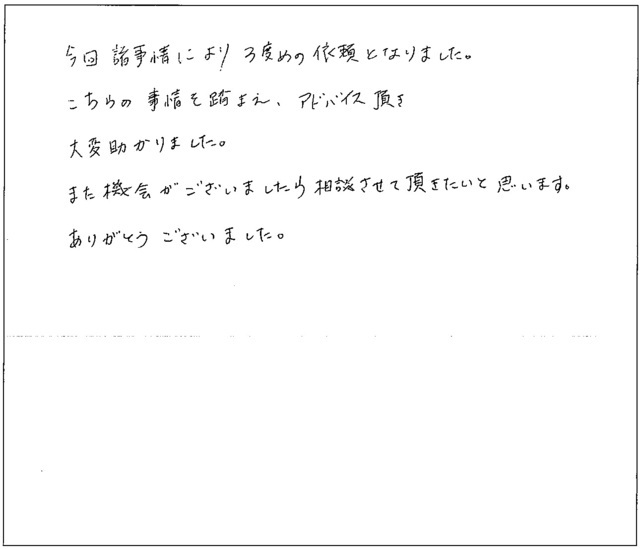 今回諸事情により3度めの依頼となりました。
こちらの事情を踏まえ、アドバイス頂き
大変助かりました。
また機会がございましたら相談させて頂きたいと思います。
ありがとうございました。